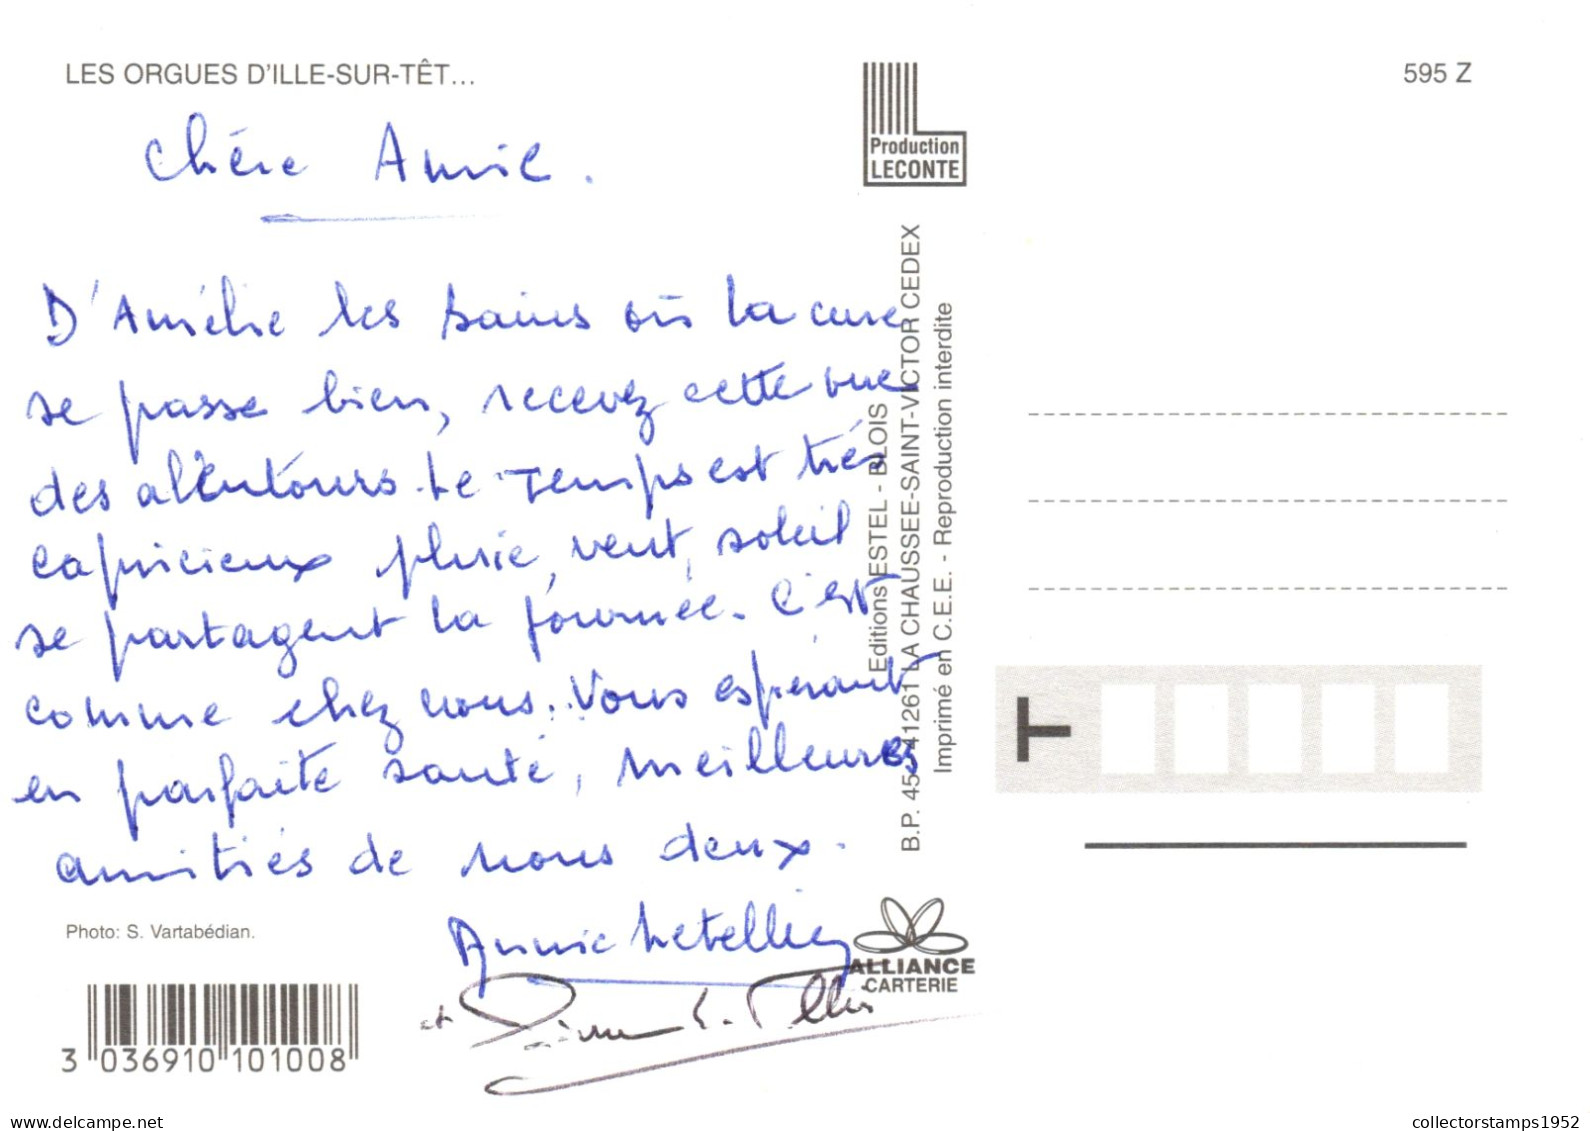 LES ORGUES D'ILLE-SUR-TÊT...
595 Z
Chère Annie.
D'Amélie les bains où la cure
se passe bien, recevez cette vue
des alentours. Le Temps est très
capricieux pluie, vent, soleil
se partagent la journée. C'est
comme chez nous. Vous espérant
en parfaite santé, meilleures
amitiés de nous deux.
Annie Letellier
et Pierre Letellier
Production
LECONTE
Editions ESTEL - BLOIS
B.P. 45 - 41261 LA CHAUSSEE-SAINT-VICTOR CEDEX
Imprimé en C.E.E. - Reproduction interdite
T
Photo: S. Vartabédian.
ALLIANCE
CARTERIE
3 036910 101008
www.delcampe.net
collectorstamps1952